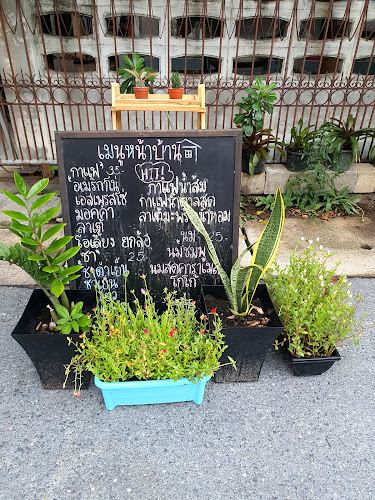 เมนูหน้าบ้าน
กาแฟ 35.-
HOT!
อเมริกาโน
กาแฟน้ำส้ม
เอสเพรสโซ่
กาแฟน้ำตาลสด
มอคค่า
ลาเต้มะพร้าวน้ำหอม
ลาเต้
โอเลี้ยง ยกล้อ
นม 25.-
ชา
นมชมพู
ชาดำเย็น
นมสดคาราเมล
ชาเย็น
โกโก้